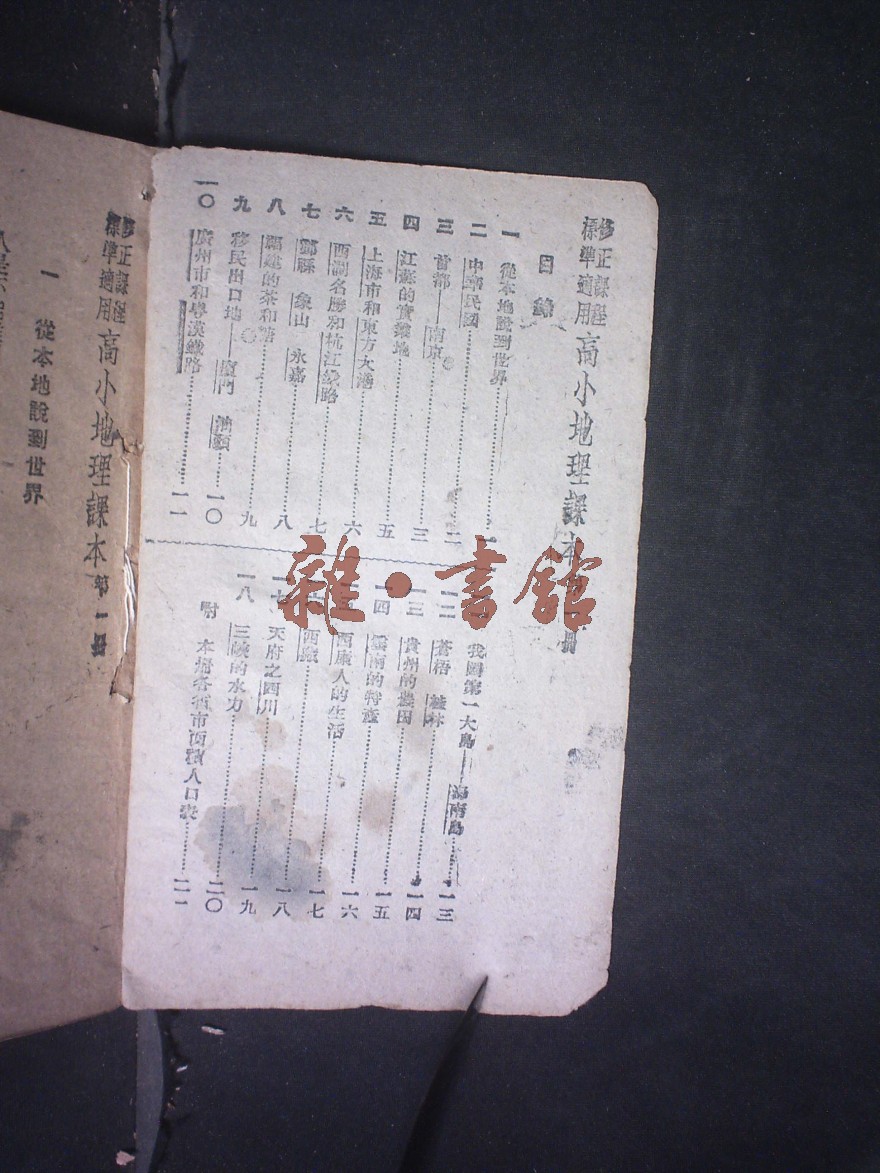 修正課程標準適用 高小地理課本 第一冊
目錄
一 從本地說到世界 一
二 中華民國 二
三 首都——南京 三
四 江蘇的實業地 五
五 上海市和東方大港 六
六 西湖名勝和杭江鐵路 七
七 鄞縣 象山 永嘉 八
八 福建的茶和糖 九
九 移民出口地——廈門 汕頭 一〇
一〇 廣州市和粵漢鐵路 一一
我國第一大島——海南島 一三
一二 蒼梧 桂林 一四
一三 貴州的梯田 一五
一四 雲南的特產 一六
西康人的生活 一七
西藏 一八
一七 天府之四川 一九
一八 三峽的水力 二〇
附 本冊各省市面積人口表 二一
雜·書館
修正課程標準適用 高小地理課本 第一冊
一 從本地說到世界